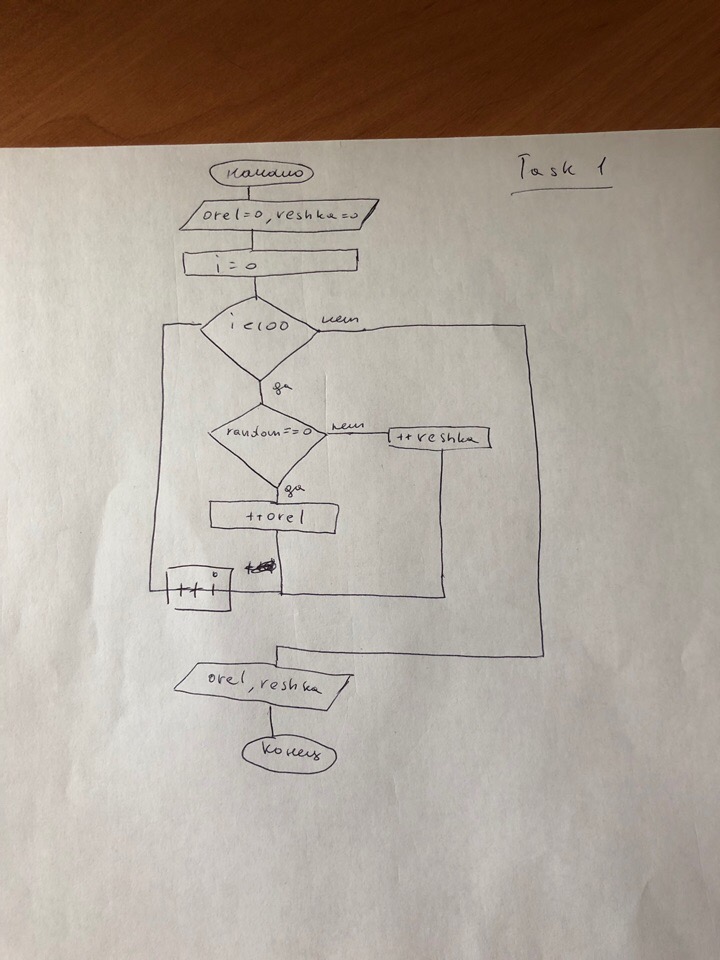 Task 1
начало
orel=0, reshka=0
i=0
i<100
нет
да
random==0
нет
++reshka
да
++orel
++i
orel, reshka
конец